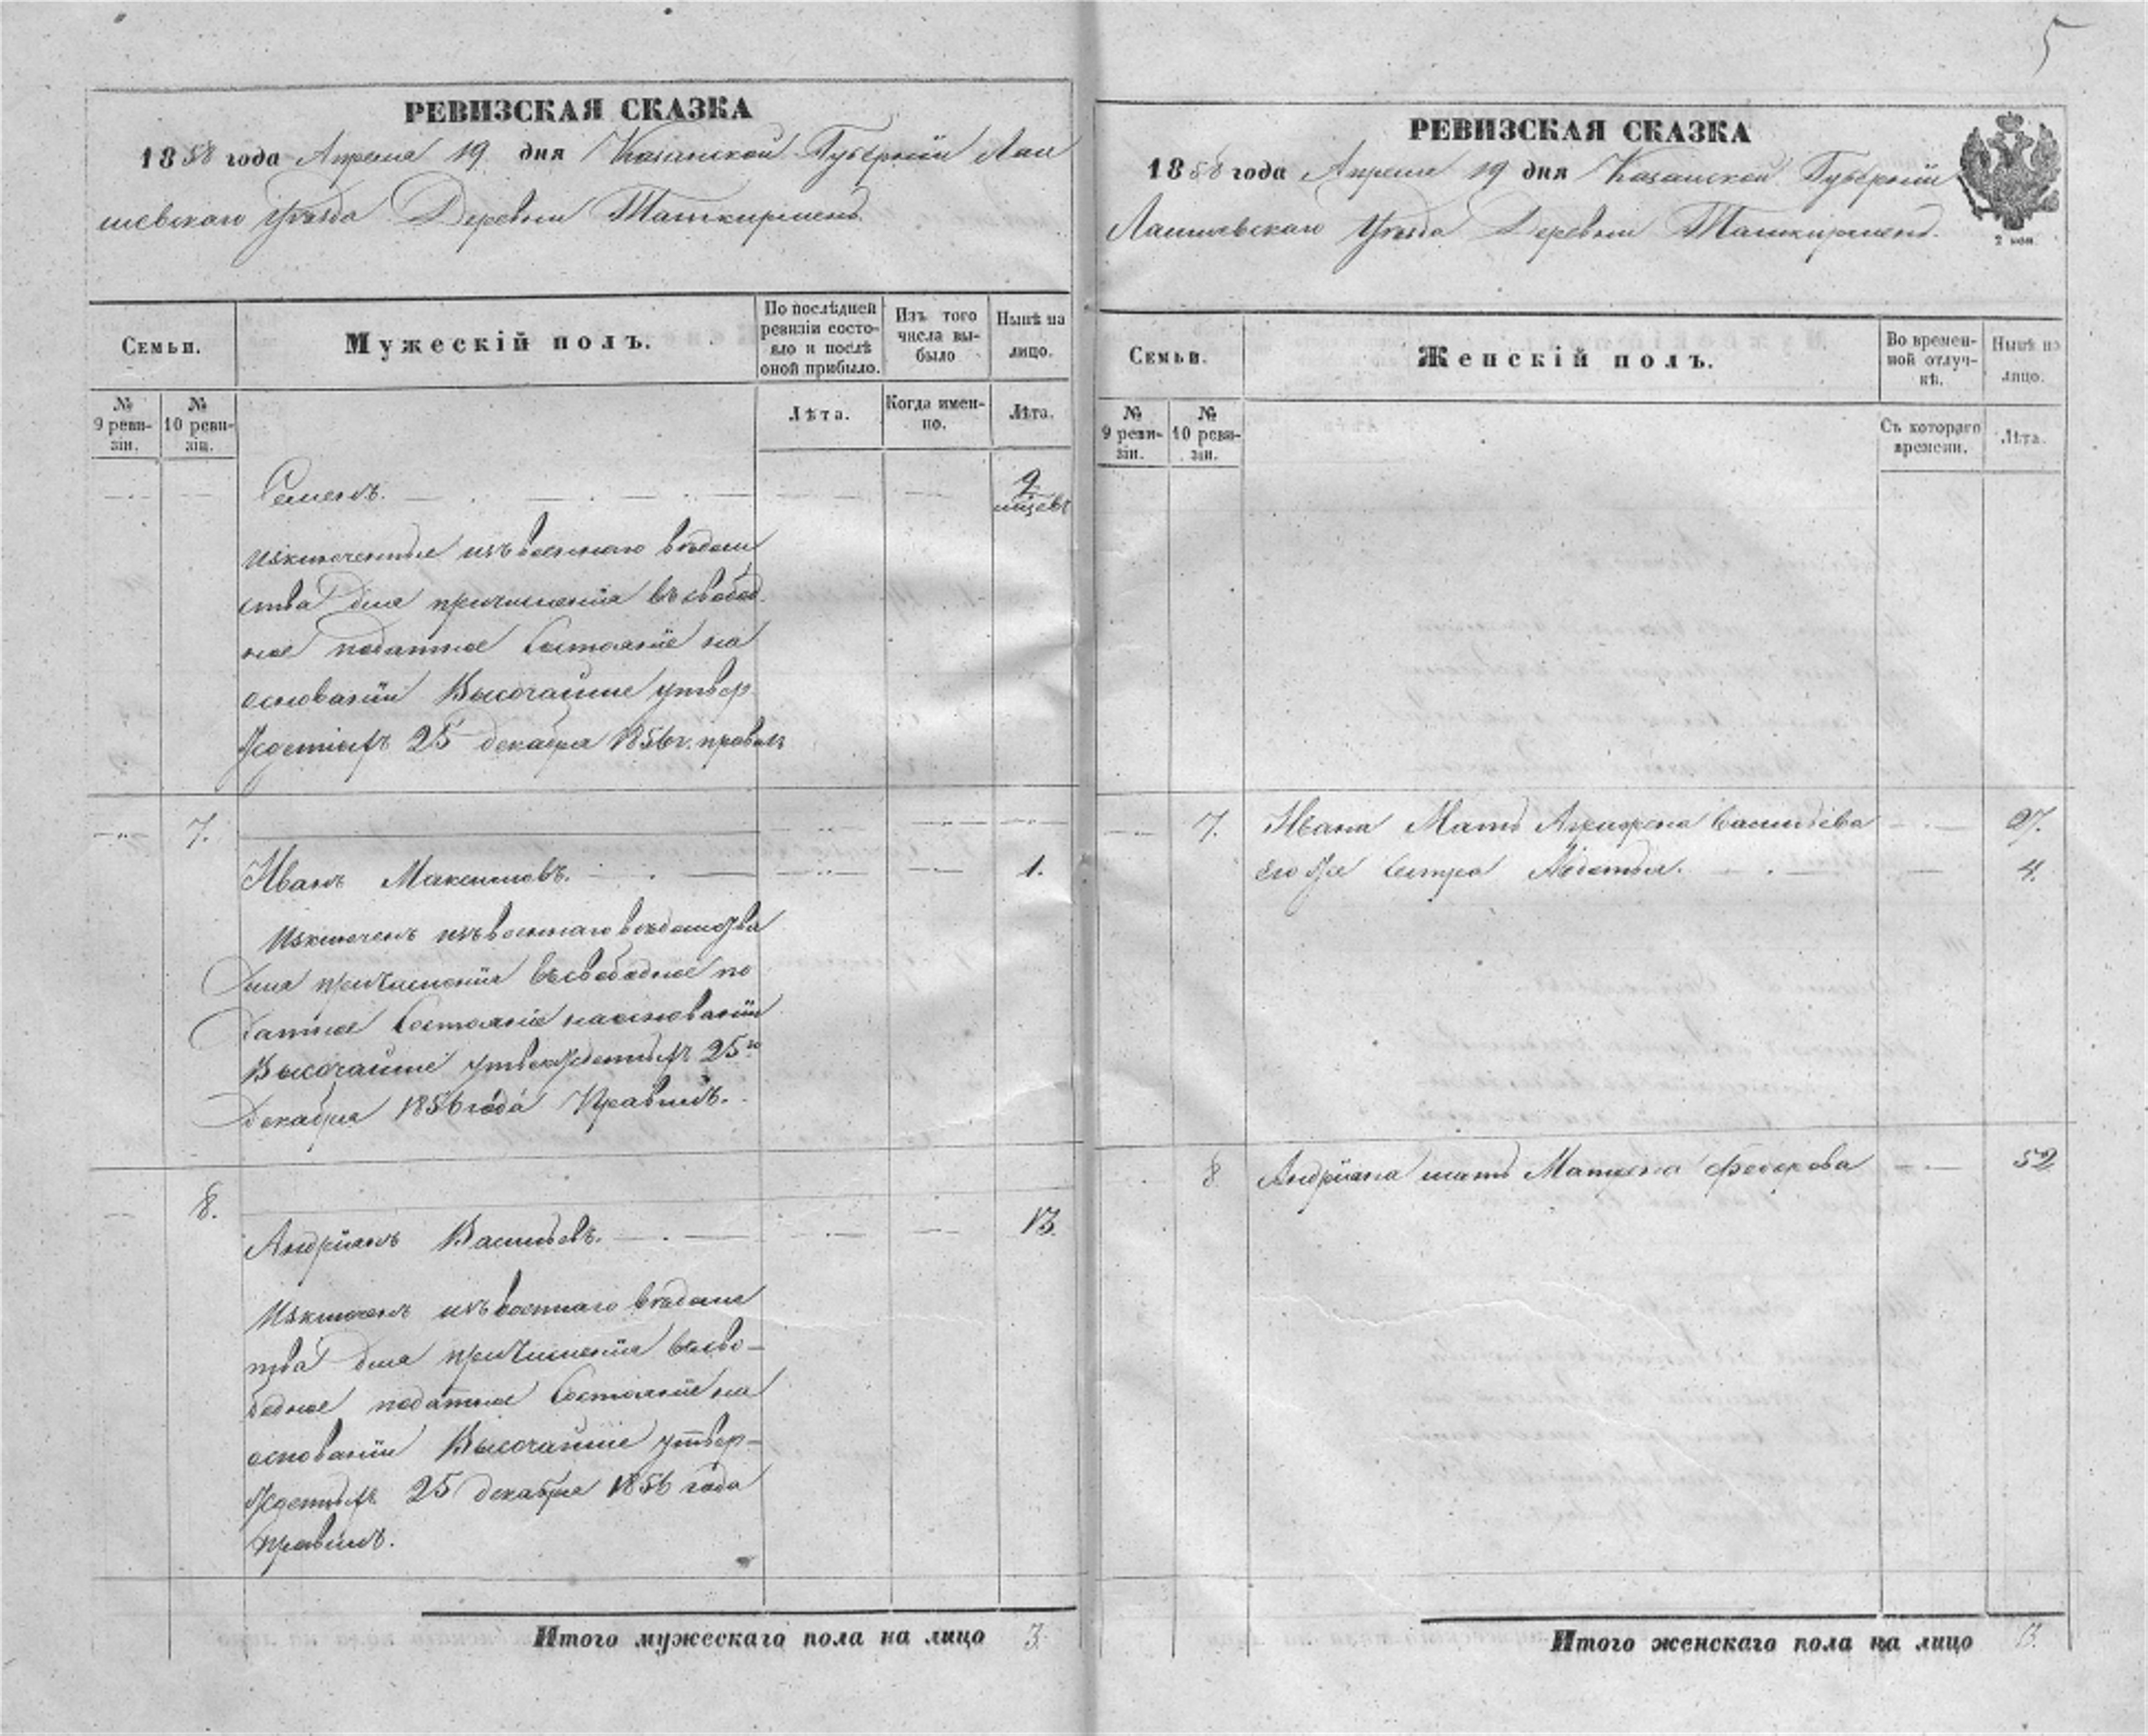 5
РЕВИЗСКАЯ СКАЗКА
1858 года Апреля 19 дня Казанской Губерніи Лаи
шевскаго Уѣзда Деревни Ташкирмень
Семьи.
Мужескій полъ.
По послѣдней ревизіи состояло и послѣ оной прибыло.
Изъ того числа выбыло
Нынѣ на лицо.
№ 9 ревизіи.
№ 10 ревизіи.
Лѣта.
Когда именно.
Лѣта.
Семенъ. 9
исключенные изъ военнаго вѣдом
ства для причисленія въ свобод
ное податное состояніе на
основаніи Высочайше утвер
жденныхъ 25 декабря 1856 г. правилъ
7.
Иванъ Максимовъ. 1.
Исключенъ изъ военнаго вѣдомства
для причисленія въ свободное по
датное состояніе на основаніи
Высочайше утвержденныхъ 25го
Декабря 1856 года Правилъ.
8.
Андріянъ Васильевъ. 13.
Исключенъ изъ военнаго вѣдомс
тва для причисленія въ сво-
бодное податное состояніе на
основаніи Высочайше утвер-
жденныхъ 25 декабря 1856 года
правилъ.
Итого мужескаго пола на лицо 3.
РЕВИЗСКАЯ СКАЗКА
1858 года Апреля 19 дня Казанской Губерніи
Лаишевскаго Уѣзда Деревни Ташкирмень.
2 коп
Семьи.
Женскій полъ.
Во временной отлучкѣ.
Нынѣ на лицо.
№ 9 ревизіи.
№ 10 ревизіи.
Съ котораго времени.
Лѣта.
7. Ивана Мать Аграфена Васильева 27.
его же сестра 4.
8 Андріяна мать Матрена Федорова 52
Итого женскаго пола на лицо 3.